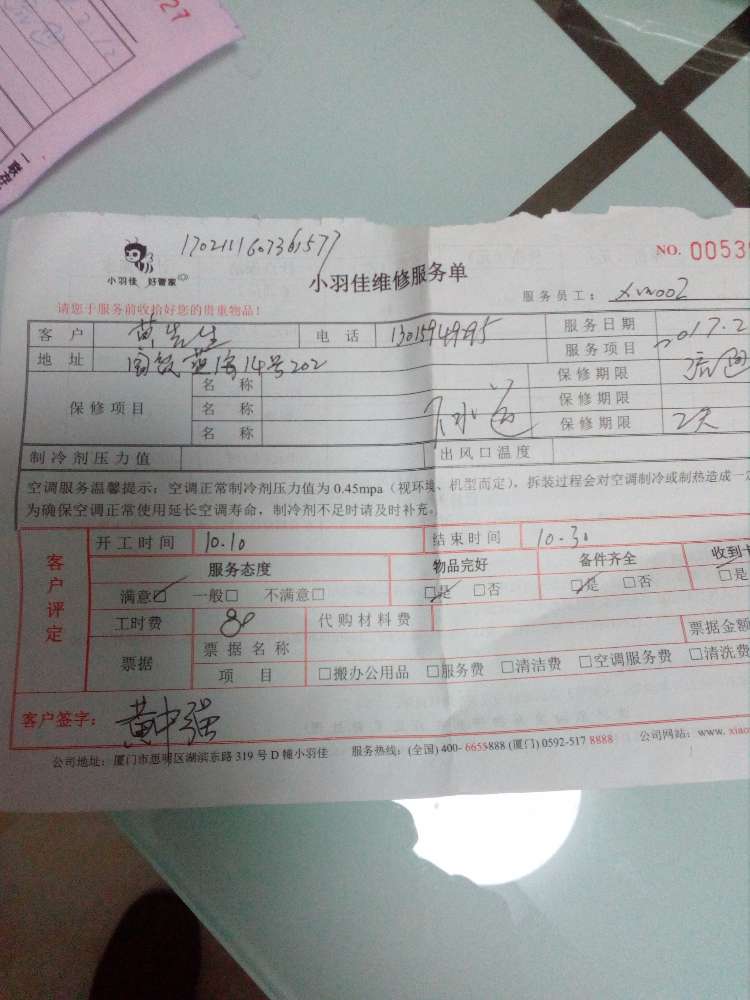 1702111607361577
小羽佳 好管家
小羽佳维修服务单
NO. 0053
服务员工：
请您于服务前收拾好您的贵重物品！
客 户 黄先生 电 话 服务日期 2017.2
地 址 14号202 服务项目
保修项目 名 称 保修期限
名 称 保修期限
名 称 下水道 保修期限 2天
制冷剂压力值 出风口温度
空调服务温馨提示：空调正常制冷剂压力值为 0.45mpa（视环境、机型而定），拆装过程会对空调制冷或制热造成一
为确保空调正常使用延长空调寿命，制冷剂不足时请及时补充。
客户评定
开工时间 10.10 结束时间 10.30
服务态度 物品完好 备件齐全 收到
满意☑ 一般□ 不满意□ ☑是 □否 ☑是 □否 □是
工时费 80 代购材料费
票据 票 据 名 称 票据金额
项 目 □搬办公用品 □服务费 □清洁费 □空调服务费 □清洗费
客户签字： 黄中强
公司地址：厦门市思明区湖滨东路 319 号 D 幢小羽佳 服务热线：(全国) 400- 6655888 (厦门) 0592-517 8888 公司网站：www. xiao